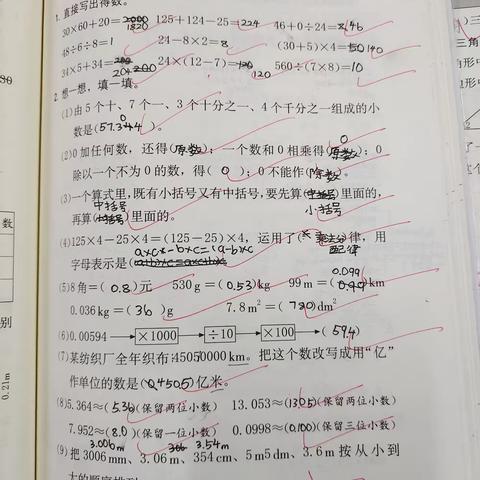 1. 直接写出得数。
30×60+20=2000 1820 125+124-25=1224 46+0÷24=8 46
48÷6÷8=1 24-8×2=8 (30+5)×4=150 140
34×5+34=200 204 24×(12-7)=130 120 560÷(7×8)=10
2. 想一想,填一填。
(1)由5个十、7个一、3个十分之一、4个千分之一组成的小
数是(57.304)。
(2)0加任何数,还得(原数);一个数和0相乘得(原数 0);0
除以一个不为0的数,得(0);0不能作(除数)。
(3)一个算式里,既有小括号又有中括号,要先算(中括号 小括号)里面的,
再算(小括号 中括号)里面的。
(4)125×4-25×4=(125-25)×4,运用了(乘法分配律)律,用
字母表示是(a×c-b×c=(a-b)×c)
(5)8角=(0.8)元 530g=(0.53)kg 99m=(0.099)km
0.036kg=(36)g 7.8m²=(780)dm²
(6)0.00594→×1000→÷10→×100→(594)
(7)某纺织厂全年织布45050000km。把这个数改写成用“亿”
作单位的数是(0.4505)亿米。
(8)5.364≈(5.36)(保留两位小数) 13.053≈(13.05)(保留两位小数)
7.952≈(8.0)(保留一位小数) 0.0998≈(0.100)(保留三位小数)
3.006m 306 3.54m
(9)把3006mm、3.06m、354cm、5m5dm、3.6m按从小到
大的顺序排列
数
别
0.21m